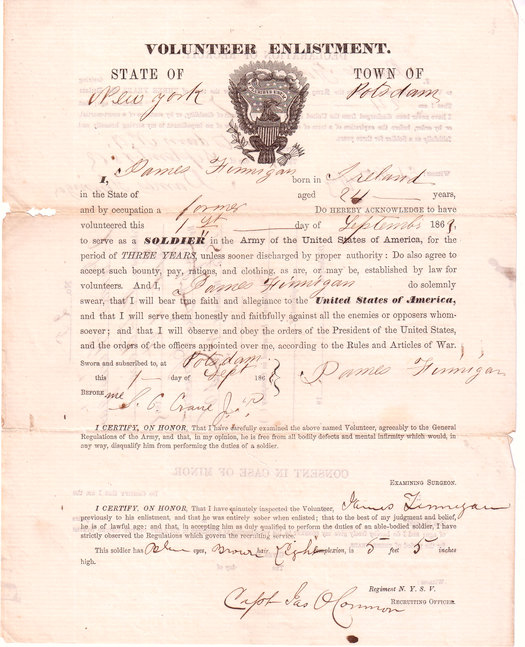 VOLUNTEER ENLISTMENT.
STATE OF TOWN OF
New York Potsdam
I, James Finnigan born in Ireland
in the State of aged 24 years,
and by occupation a farmer Do HEREBY ACKNOWLEDGE to have
volunteered this 1st day of September 186
to serve as a SOLDIER in the Army of the United States of America, for the
period of THREE YEARS, unless sooner discharged by proper authority: Do also agree to
accept such bounty, pay, rations, and clothing, as are, or may be, established by law for
volunteers. And I, James Finnigan do solemnly
swear, that I will bear true faith and allegiance to the United States of America,
and that I will serve them honestly and faithfully against all the enemies or opposers whom-
soever; and that I will observe and obey the orders of the President of the United States,
and the orders of the officers appointed over me, according to the Rules and Articles of War.
Sworn and subscribed to, at Potsdam
this 1 day of Sept 186 James Finnigan
BEFORE me S. C. Crane J.P.
I CERTIFY, ON HONOR, That I have carefully examined the above named Volunteer, agreeably to the General
Regulations of the Army, and that, in my opinion, he is free from all bodily defects and mental infirmity which would, in
any way, disqualify him from performing the duties of a soldier.
EXAMINING SURGEON.
I CERTIFY, ON HONOR, That I have minutely inspected the Volunteer, James Finnigan
previously to his enlistment, and that he was entirely sober when enlisted; that to the best of my judgment and belief,
he is of lawful age; and that, in accepting him as duly qualified to perform the duties of an able-bodied soldier, I have
strictly observed the Regulations which govern the recruiting service.
This soldier has Blue eyes, Brown hair, Light complexion, is 5 feet 5 inches
high.
Regiment N. Y. S. V.
Capt Jas O Connor RECRUITING OFFICER.